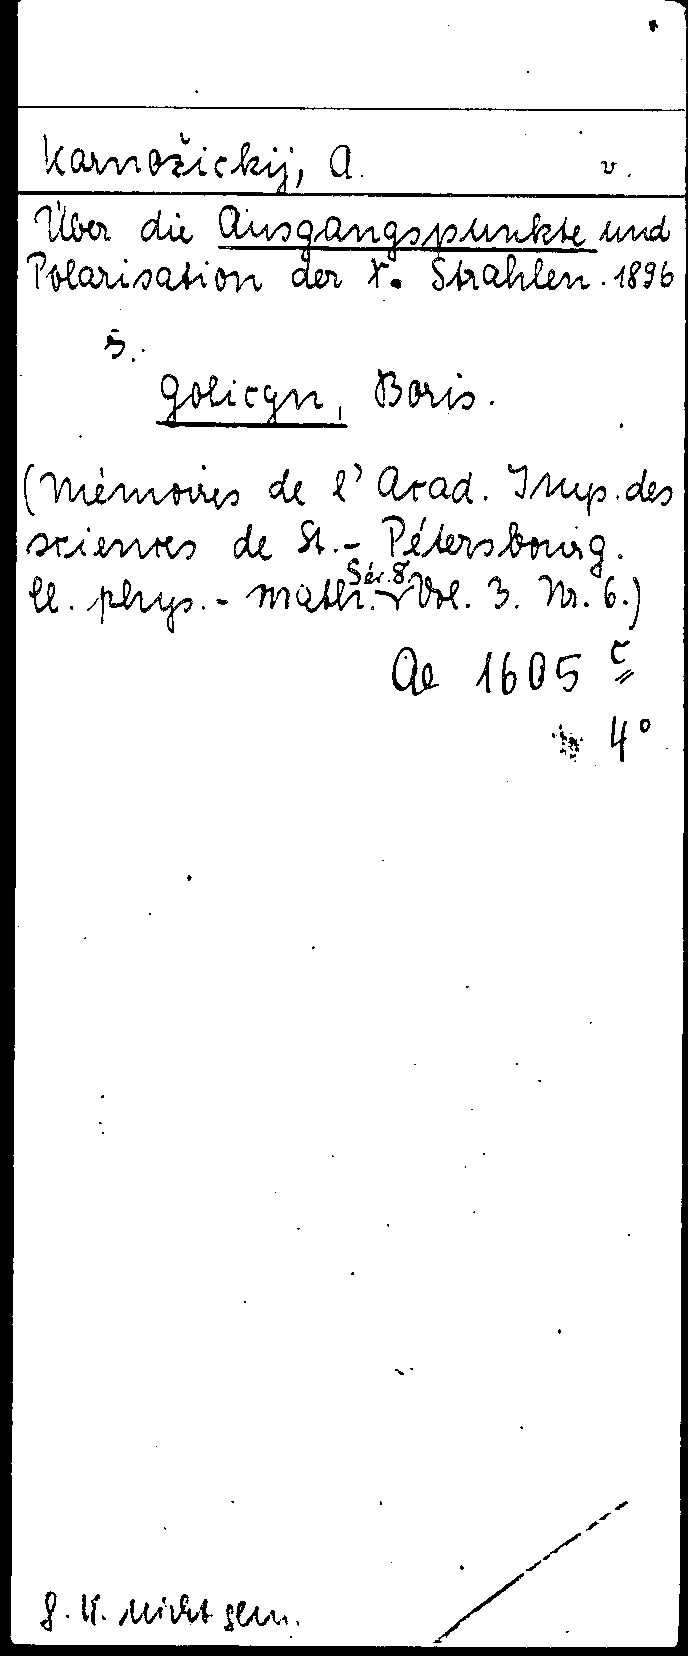 Karnožickij, A. v.
Über die Ausgangspunkte und
Polarisation der X. Strahlen. 1896
s.
Golicyn, Boris.
(Mémoires de l' Acad. Imp. des
sciences de St.- Pétersbourg.
Cl. phys.- math. Sér. 8. Vol. 3. Nr. 6.)
Ae 1605 c
4°
g. K. nicht gem.